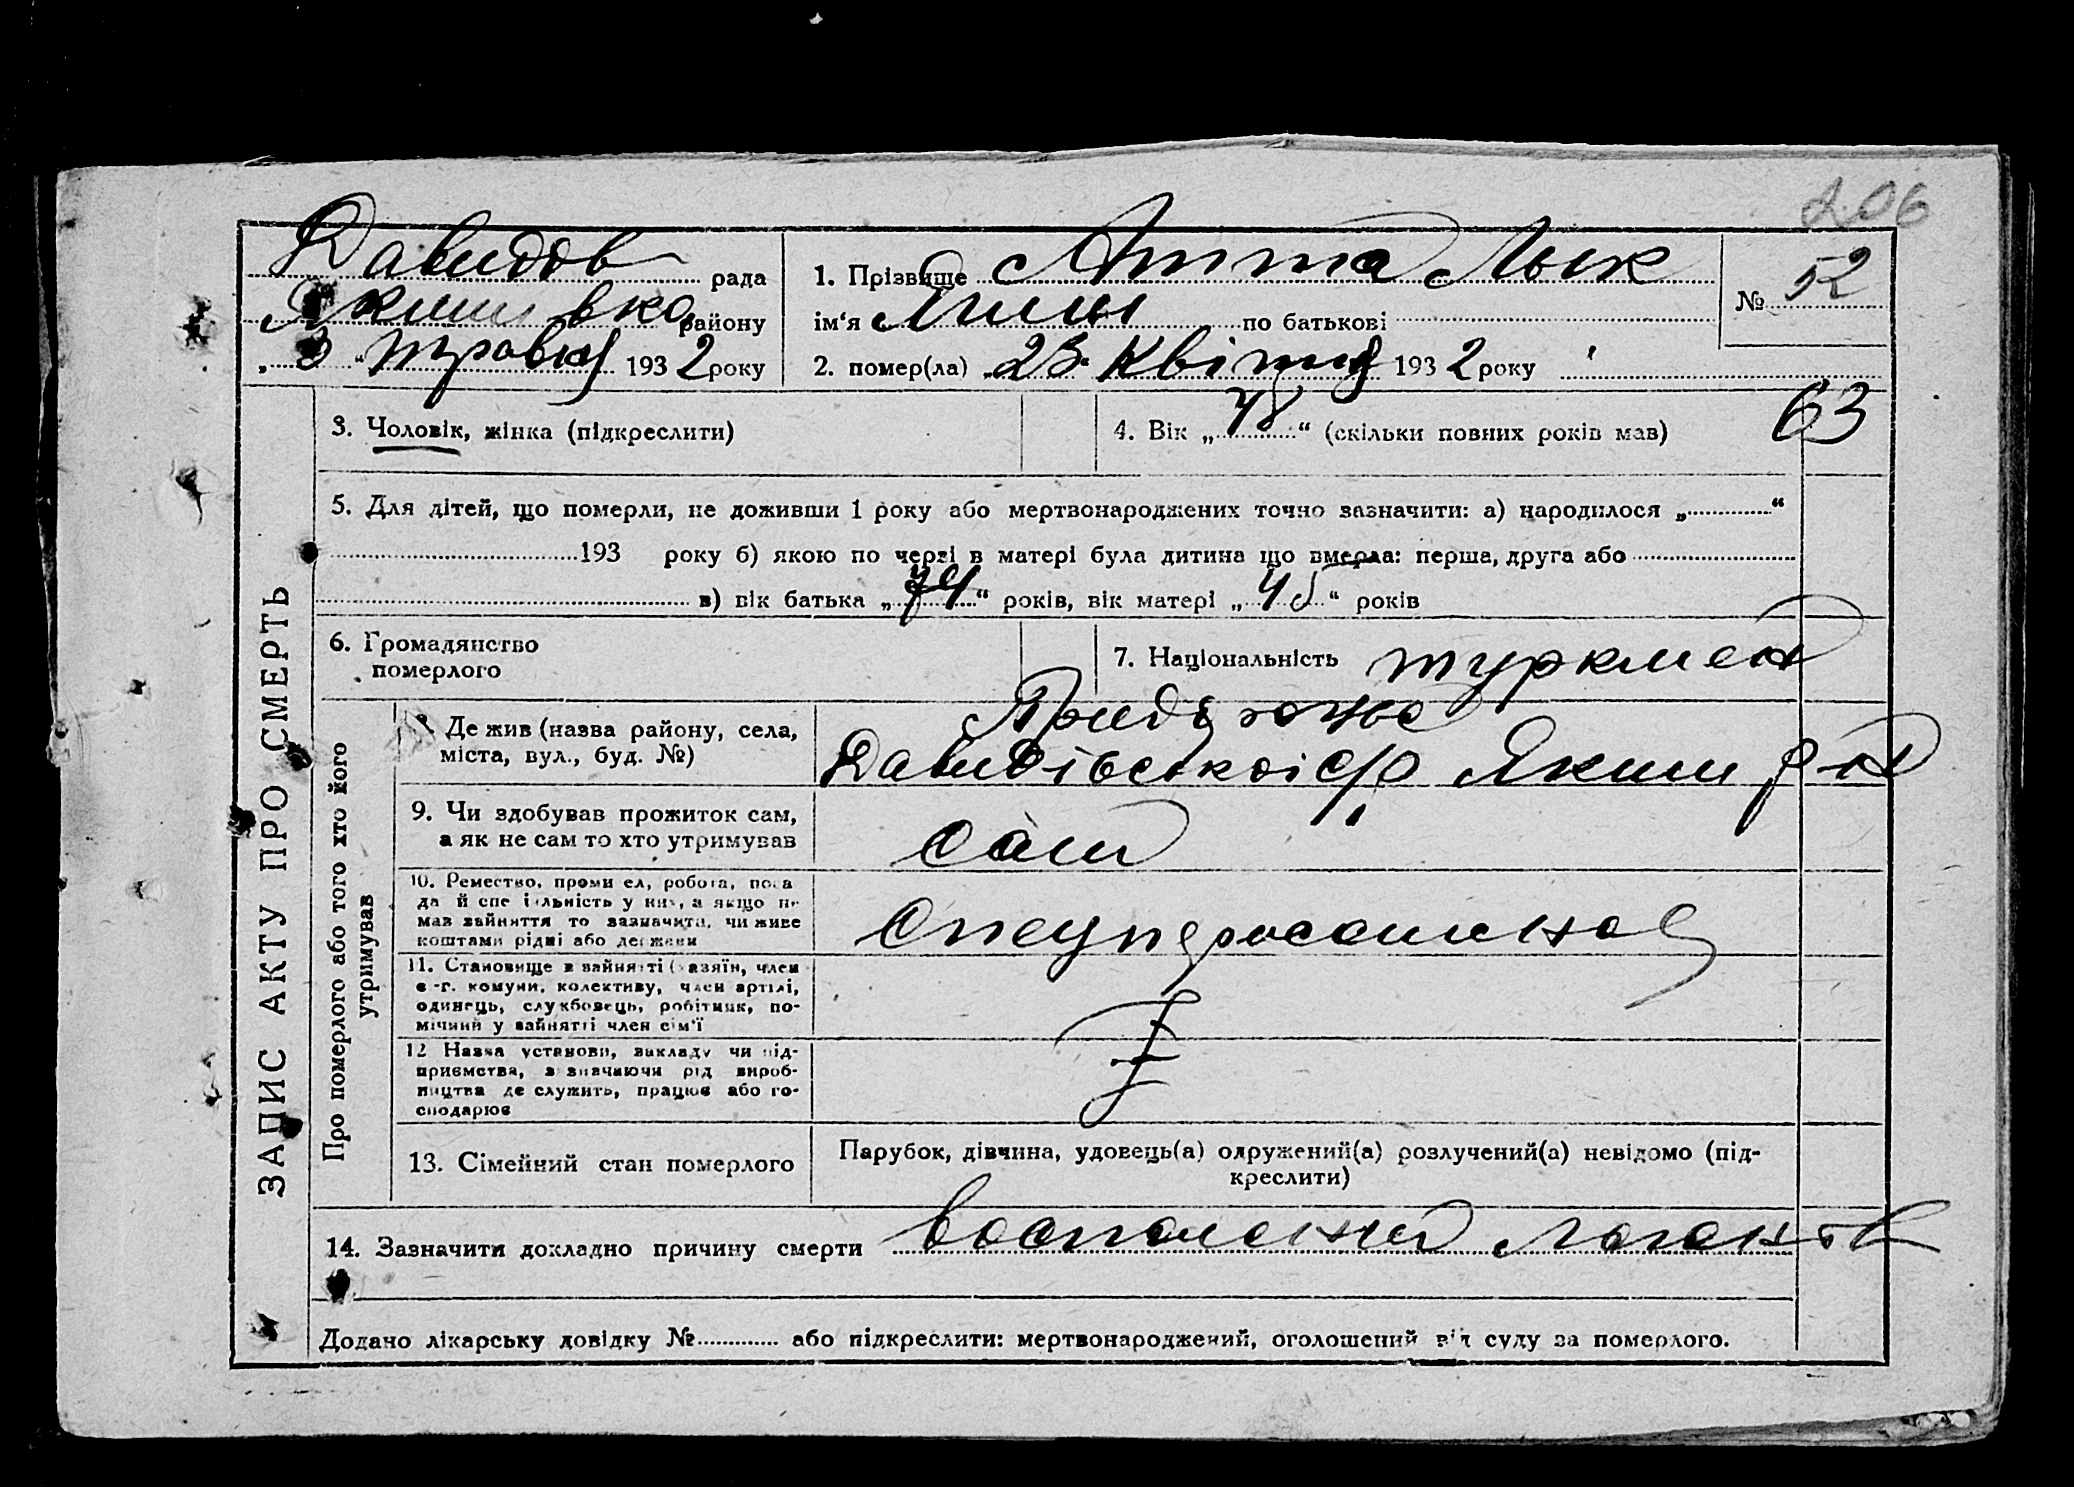 206
Давидов рада
Якимівко району
„ 3 “ травня 1932 року
1. Прізвище Атта Лык
ім‘я по батькові
№ 52
2. помер(ла) „ 23. Квітня 1932 року
3. Чоловік, жінка (підкреслити)
4. Вік „ 48 “ (скільки повних років мав)
63
5. Для дітей, що померли, не доживши 1 року або мертвонароджених точно зазначити: а) народилося „ “
193 року б) якою по черзі в матері була дитина що вмерла: перша, друга або
в) вік батька „ “ років, вік матері „ 45 “ років
6. Громадянство
померлого
7. Національність туркмен
ЗАПИС АКТУ ПРО СМЕРТЬ
Про померлого або того хто його
утримував
8. Де жив (назва району, села,
міста, вул., буд. №)
Давидівської с/р Яким р-н
9. Чи здобував прожиток сам,
а як не сам то хто утримував
сам
10. Ремество, промисел, робота, поса
да й спеціяльність у них, а якщо не
мав зайняття то зазначити, чи живе
коштами рідні або держави
Спецпереселенец
11. Становище в зайнятті (хазяїн, член
с.-г. комуни, колективу, член артілі,
одинець, службовець, робітник, по-
мічний у зайнятті член сім'ї
12 Назва установи, викладу чи під-
приємства, зазначаючи рід вироб-
ництва де служить, працює або го-
сподарює
13. Сімейний стан померлого
Парубок, дівчина, удовець(а) одружений(а) розлучений(а) невідомо (під-
креслити)
14. Зазначити докладно причину смерти воспаление
Додано лікарську довідку № або підкреслити: мертвонароджений, оголошений від суду за померлого.